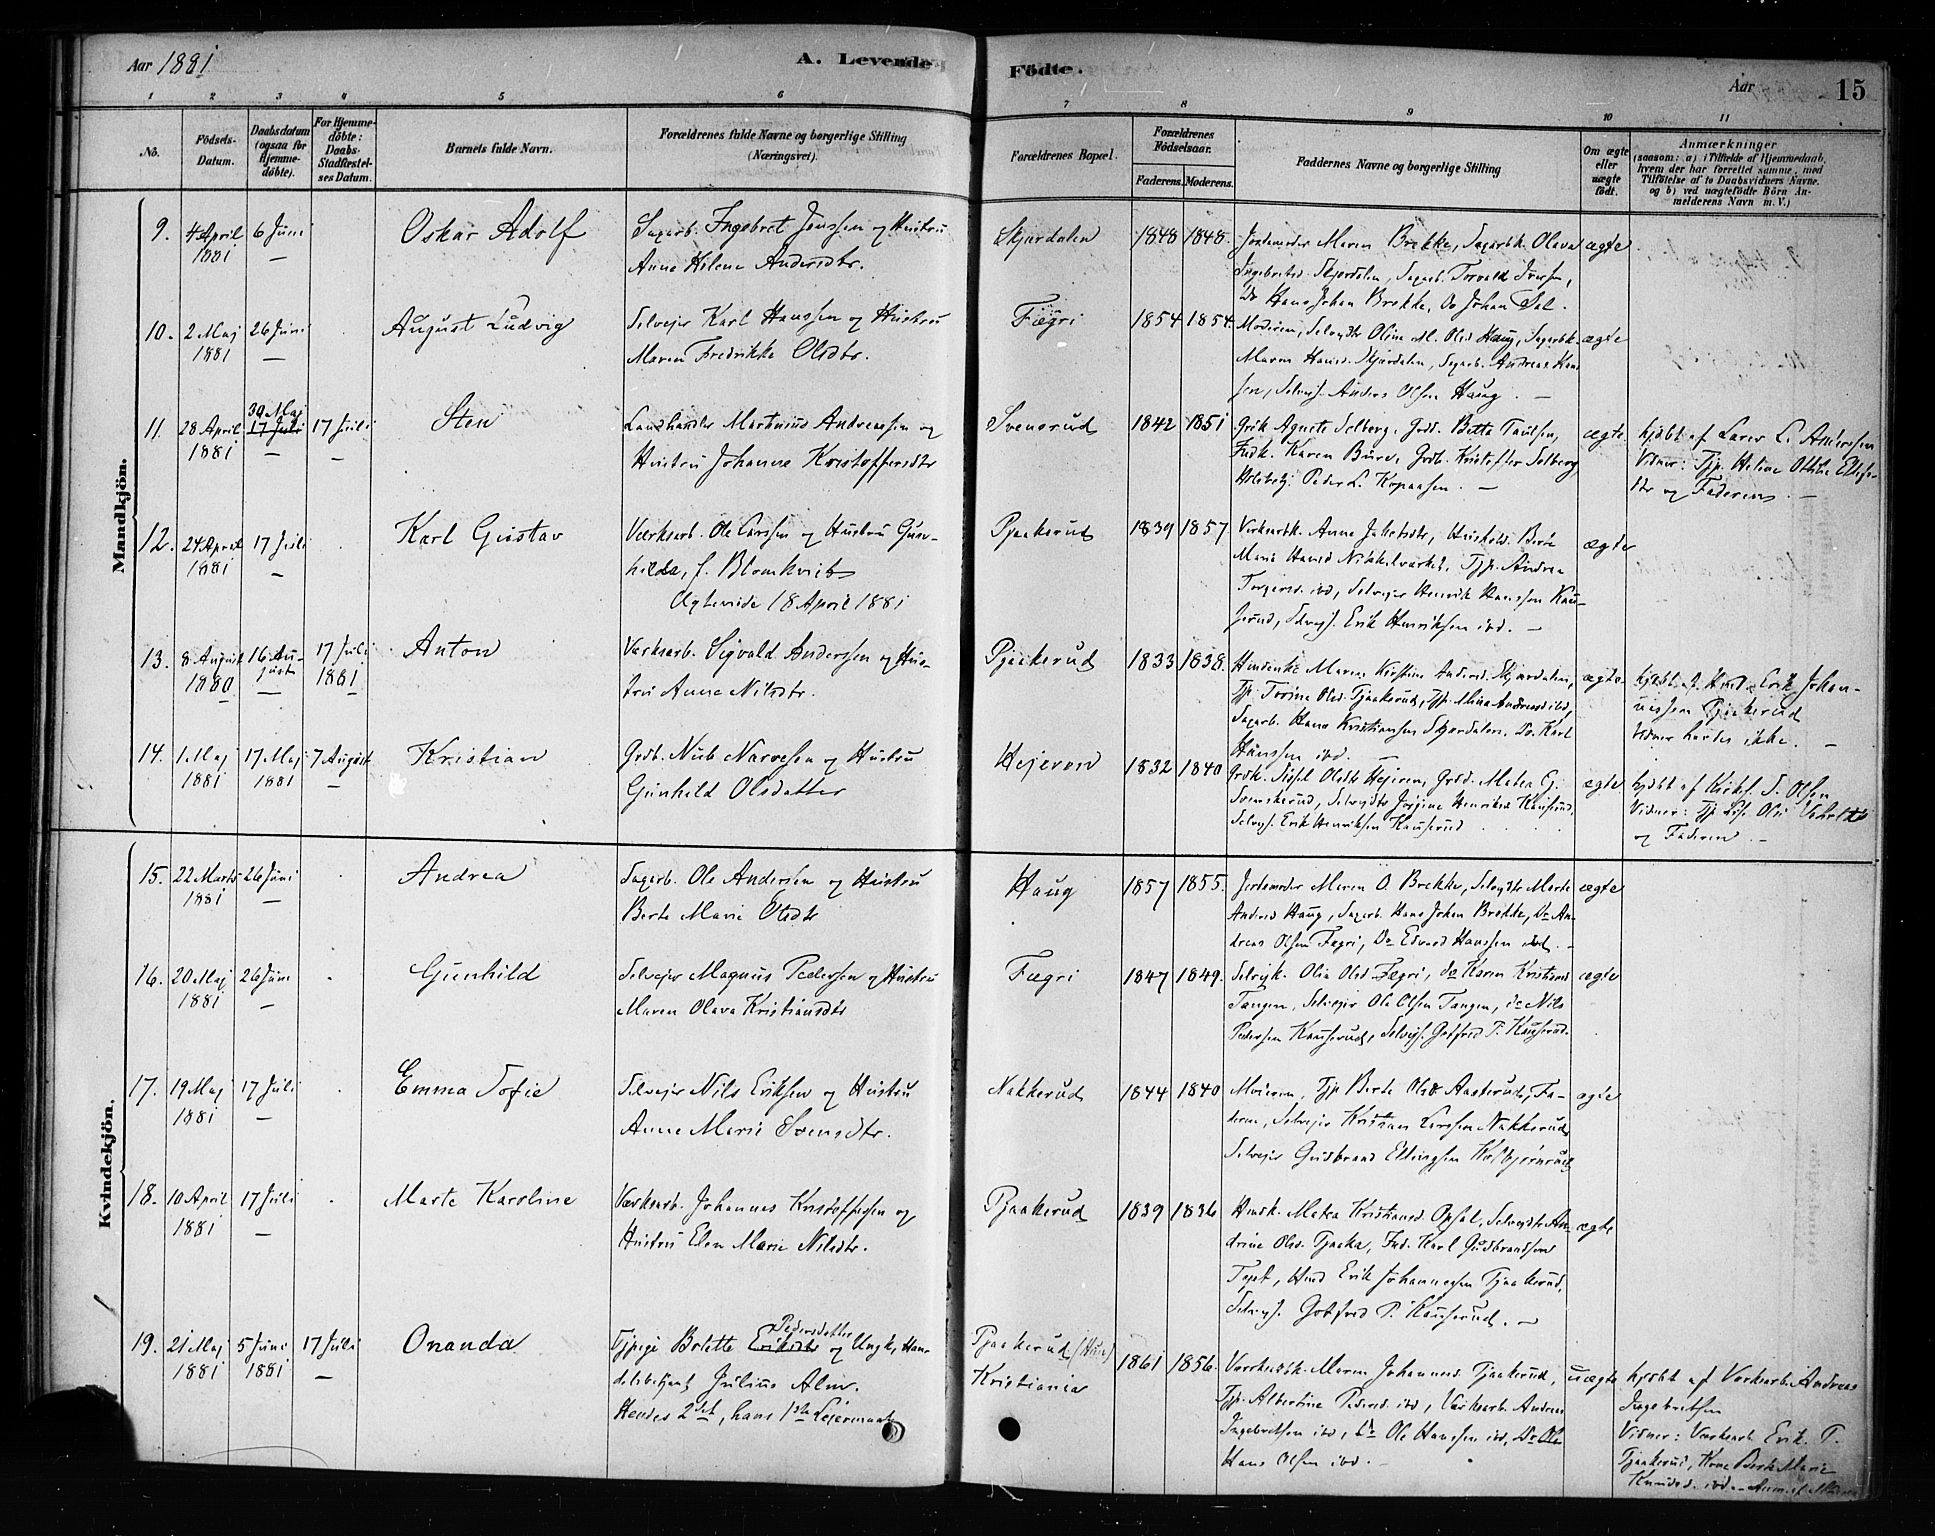 Aar 1881
A. Levende Födte.
Aar
15
1 2 3 4 5 6 7 8 9 10 11
No.
Födsels-Datum.
Daabsdatum (ogsaa for Hjemmedöbte).
For Hjemmedöbte: Daabs-Stadfæstelses Datum.
Barnets fulde Navn.
Forældrenes fulde Navne og borgerlige Stilling (Næringsvei).
Forældrenes Bopæl.
Forældrenes Födselsaar.
Faderens. Moderens.
Faddernes Navne og borgerlige Stilling
Om ægte eller uægte födt.
Anmærkninger
(saasom: a) i Tilfælde af Hjemmedaab, hvem der har forrettet samme, med Tilföielse af to Daabsvidners Navne. og b) ved uægtefödte Börn Anmelderens Navn m. V.)
Mandkjön.
9. 4 April 1881 6 Juni — Oskar Adolf
Sagarb. Ingebret Jenssen og Hustru
Anne Helene Andersdtr.
Skjærdalen 1848 1848.
Jordemoder Maren Brekke, Sagarbk. Olava
Ingebretsd. Skjærdalen, Sagarb. Torvald Iversen,
Do Hans Johan Brekke, Do Johan
ægte
10. 2 Maj 1881 26 Juni — August Ludvig
Selvejer Karl Hanssen og Hustru
Maren Fredrikke Olsdtr.
Fægri 1854 1854.
Moderen, Selvejdtr Oline M. Olsd Haug, Sagarbk.
Maren Hansd. Skjærdalen, Sagarb. Andreas Hans
sen, Selvejs. Anders Olsen Haug. —
ægte
11. 28 April 1881 30 Maj 17 Juli — 17 Juli — Sten
Landhandler Martinius Andreassen og
Hustru Johanne Kristoffersdtr
Svenerud 1842 1851
Grdk Agnete Solberg, Grdd. Betta Paulsen,
Indk. Karen Bure, Grdb. Kristoffer Solberg,
Peder L. —
ægte.
hjdbt af Lærer L. Anderssen
Vidner: Tjp. Helene Othilie
dtr og Faderen. —
12. 24 April 1881 17 Juli — Karl Gustav
Værksarb. Ole Larssen og Hustru Gun-
hilda, f. Blomkvist
Ægteviede 18 April 1881
Pjaakerud 1839 1857
Verksarbk. Anne
Marie Hansd Nikkelværket, Tjp. Andrea
Torgersd. ibd, Selvejer Henrik Hanssen Kau-
serud, Selvejs. Erik Henriksen ibd. —
ægte
13. 8 August 1880 16 Au-gust — 17 Juli 1881 Anton
Værksarb. Sigvald Anderssen og Hus-
tru Anne Nilsdtr.
Pjaakerud 1833 1838.
Maren Kirstine Andersd. Skjærdalen,
Tjp. Torine Olsd. Pjaakerud, Tjp. Mina Andreasd ibd,
Sagarb. Hans Kristiansen Skjærdalen, Do. Karl
Hanssen ibd. —
ægte.
hjdbt. af Erik Johan-
nessen Pjaakerud
Vidner havdes ikke. —
14. 1 Maj 1881 17 Maj 1881 7 August — Kristian
Grdb. Nub Narvesen og Hustru
Gunhild Olsdatter
Hejeren 1832 1840
Grdk. Sissel Olsdtr Hejeren, Grdd. Matea G.
Svenskerud, Selvejdtr Jørgine Henriksd Kauserud,
Selvejs. Erik Henriksen Kauserud
ægte
hjdbt af Kirkes. T. Olsen
Vidner: Tjp Lise Olsd
og Faderen. —
Kvindekjön.
15. 22 Marts 1881 26 Juni — Andrea
Sagarb. Ole Andersen og Hustru
Berte Marie Olsdtr
Haug 1857 1855.
Jordemoder Maren O. Brekke, Selvejdtr Marte
Andersd Haug, Sagarb. Hans Johan Brekke, Do An-
dreas Olsen Fægri, Do Edvard Hanssen ibd. —
ægte
16. 20 Maj 1881 26 Juni — Gunhild
Selvejer Magnus Pedersen og Hustru
Maren Olava Kristiansdtr
Fægri 1847 1849.
Selvejk. Olia Olsd Fægri, Do Karen Kristiansd
Tangen, Selvejer Ole Olsen Tangen, Do Nils
Pedersen Kauserud, Selvejs. Gotfred P. Kauserud.
ægte
17. 19 Maj 1881 17 Juli — Emma Sofie
Selvejer Nils Eriksen og Hustru
Anne Marie Svensdtr.
Nakkerud 1844 1840
Moderen, Tjp Berte Olsdtr Aasterud, Fa-
deren, Selvejer Kristian Larssen Nakkerud
Selvejer Gudbrand Ellingsen
ægte
18. 10 April 1881 17 Juli — Marte Karoline
Værksarb. Johannes Kristoffersen og
Hustru Elen Marie Nilsdtr.
Pjaakerud 1839 1836
Husk. Matea Kristiansd Opsal, Selvejdtr An-
drine Olsd. Pjaaka, Ind. Karl Gudbrandsen
Erik Johannessen Pjaakerud,
Selvejs. Gotfred P. Kauserud. —
ægte
19. 21 Maj 1881 5 Juni 1881 17 Juli — Onanda
Tjpige Bolette Eriksdtr Pedersdatter og Ungk, Han-
delsbetjent Julius Alm.
Hendes 2det, hans 1ste Lejermaal
Pjaakerud (Hun)
Kristiania
1861 1856.
Værksarbk. Maren Johannesd Pjaakerud,
Tjp. Albertine Pedersd ibd, Værksarb. Andreas
Ingebretsen ibd, Do Ole Hanssen ibd, Do Ole
Hans Olsen ibd. —
uægte
hjdbt af Værksarb. Andreas
Ingebretsen
Vidner: Værksarb Erik P.
Pjaakerud, Kone Berte Marie
Knudsd. ibd. —